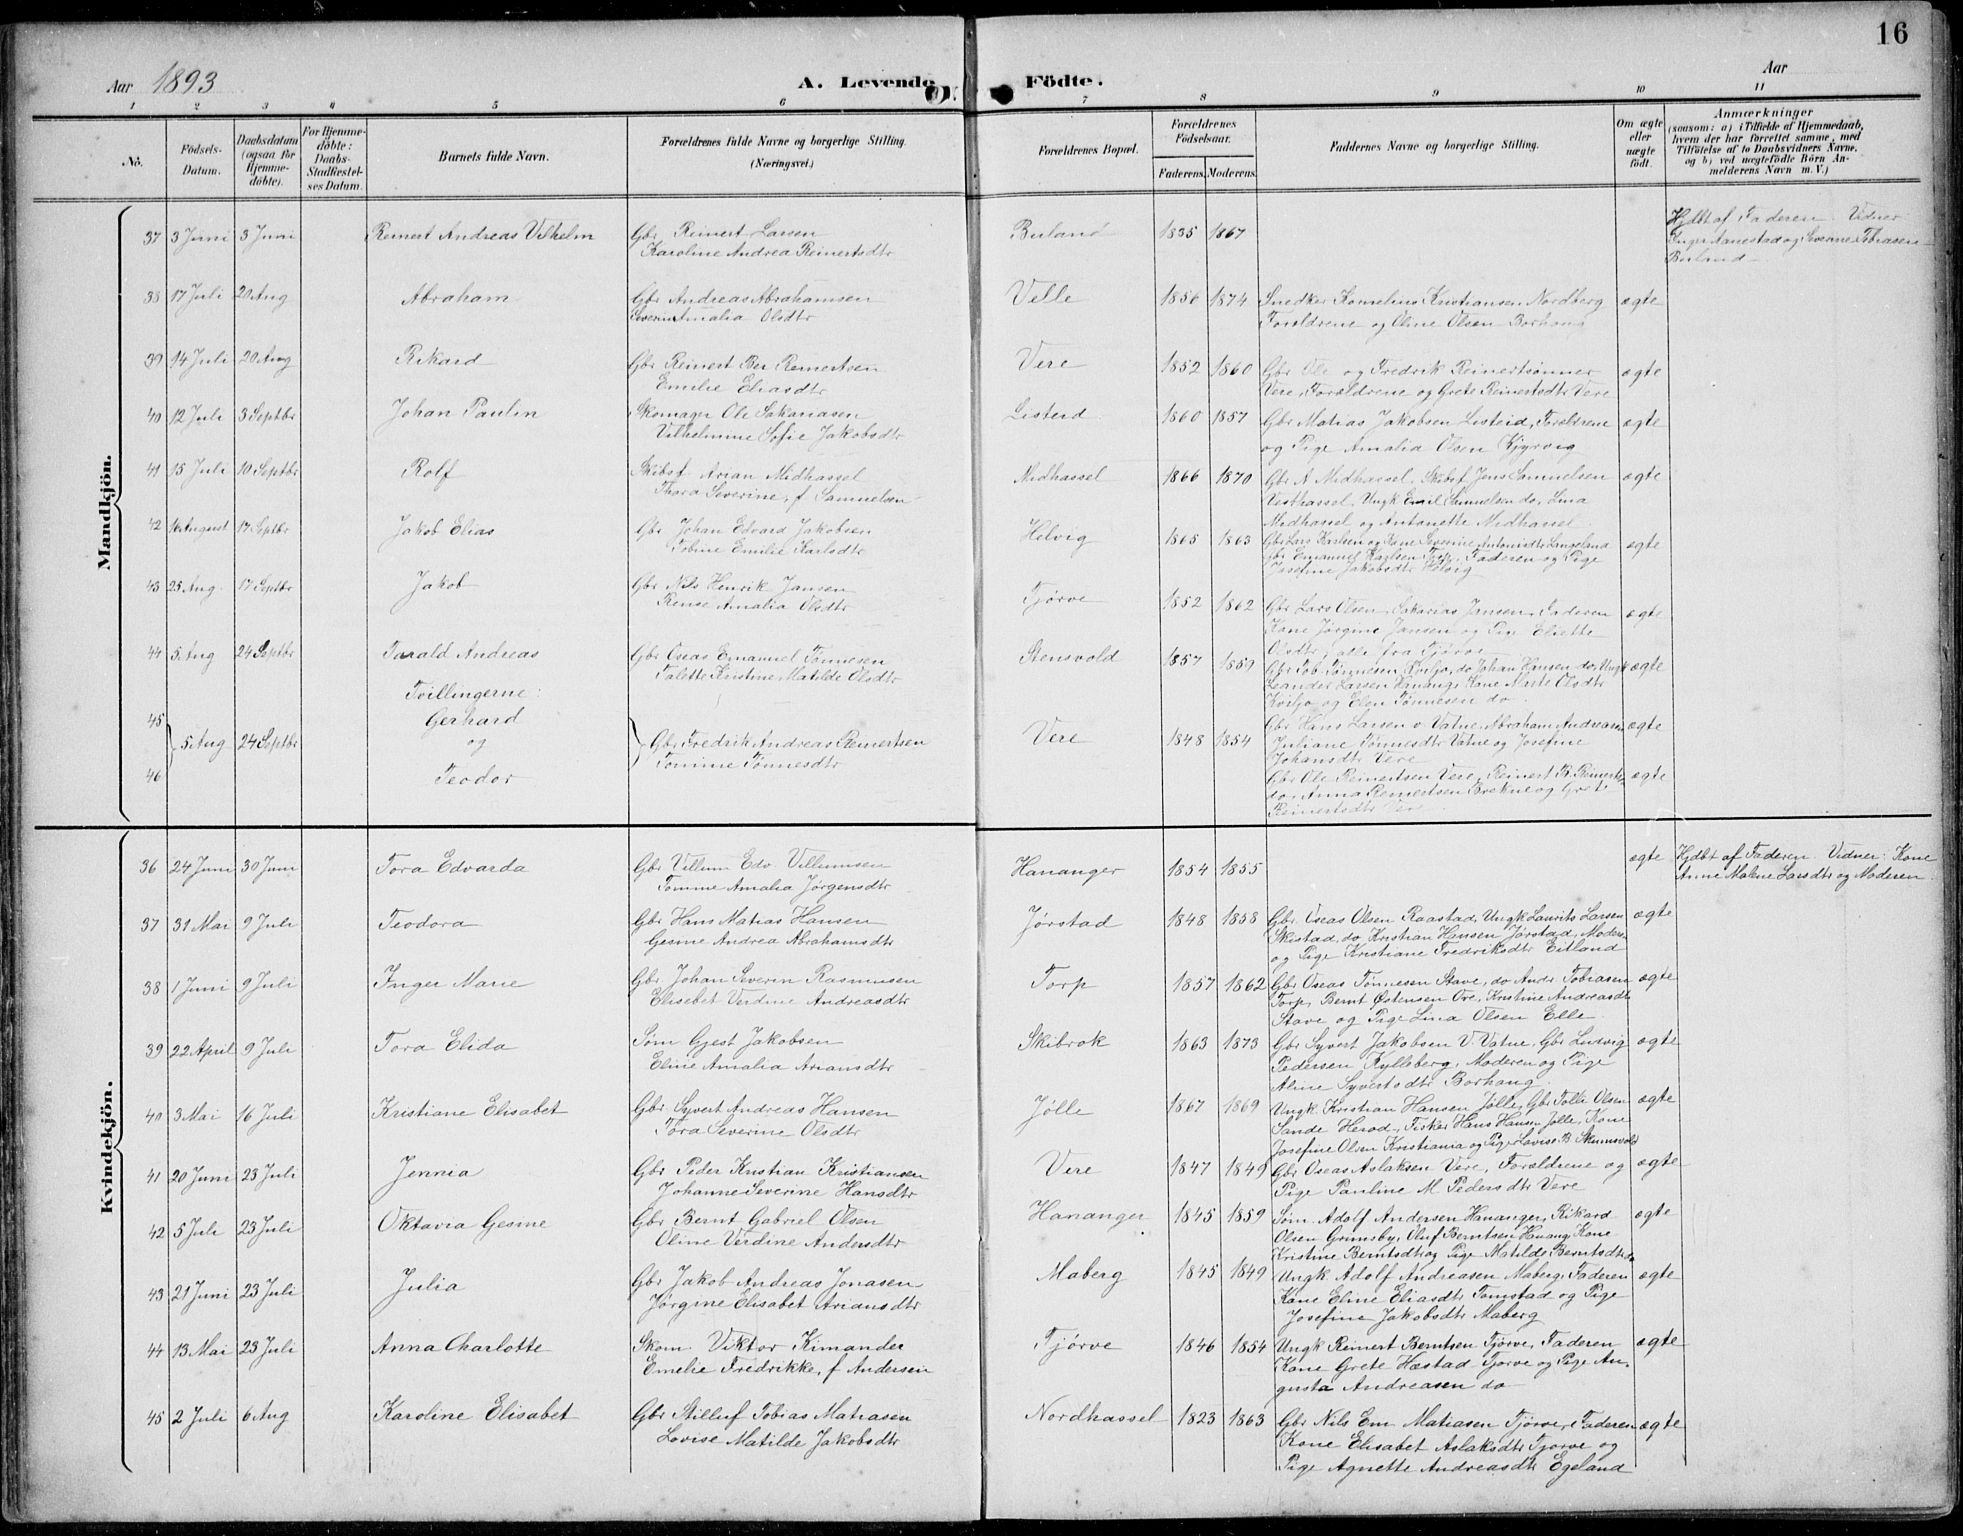 16
Aar 1893
A. Levende Födte.
Aar
1 2 3 4 5 6 7 8 9 10 11
No.
Födsels-Datum.
Daabsdatum (ogsaa for Hjemme-döbte).
For Hjemme-döbte: Daabs-Stadfæstel-ses Datum.
Barnets fulde Navn.
Forældrenes fulde Navne og borgerlige Stilling. (Næringsvei.)
Forældrenes Bopæl.
Forældrenes Födselsaar.
Faderens. Moderens.
Faddernes Navne og borgerlige Stilling.
Om ægte eller uægte födt.
Anmærkninger
(saasom: a) i Tilfælde af Hjemmedaab, hvem der har forrettet samme, med Tilföielse af to Daabsvidners Navne, og b) ved uægtefödte Börn An-melderens Navn m. V.)
Mandkjön.
37 3 Juni 3 Juni Reinert Andreas Vilhelm Gbr Reinert Larsen Buland 1835 1867 Hjdbt af Faderen. Vidner
Karoline Andrea Reinertsdtr Inger Aanestad og Severine Tobiasen
Buland
38 17 Juli 20 Aug Abraham Gbr Andreas Abrahamsen Velle 1856 1874 Snedker Kornelius Kristiansen Nordberg ægte
Severine Amalia Olsdtr Forældrene og Oline Olsen Borhaug
39 14 Juli 20 Aug Rikard Gbr Reinert Ber Reinertsen Vere 1852 1860 Gbr Ole og Fredrik Reinertsönner ægte
Emilie Eliasdtr Vere, Forældrene og Grete Reinertsdtr Vere
40 12 Juli 3 Septbr Johan Paulin Skomager Ole Sakariasen Listeid 1860 1857 Gbr Matias Jakobsen Listeid, Forældrene ægte
Vilhelmine Sofie Jakobsdtr og Pige Amalia Olsen Kjyrvig
41 15 Juli 10 Septbr Rolf Skibsf. Arian Midhassel Midhassel 1866 1870 Gbr A Midhassel, Skibsf Jens Samuelsen ægte
Thora Severine, f Samuelsen Vesthassel, Ungk Emil Samuelsen do, Lina
Midhassel og Antonette Midhassel
42 16 August 17 Septbr Jakob Elias Gbr Johan Edvard Jakobsen Helvig 1865 1863 Gbr Lars Karlsen og Kone Severine Antonisdtr Langeland ægte
Tobine Emilie Karlsdtr Gbr Emanuel Karlsen Torp, Faderen og Pige
Josefine Jakobsdtr Helvig
43 25 Aug. 17 Septbr Jakob Gbr Nils Henrik Jansen Tjörve 1852 1862 Gbr Lars Olsen, Sakarias Jansen, Faderen ægte
Rense Amalia Olsdtr Kone Jörgine Jansen og Pige Eliette
Olsdtr, alle fra Tjörve
44 5 Aug 24 Septbr Tarald Andreas Gbr Oseas Emanuel Tönnesen Stensvold 1857 1859 Gbr Tob. Tönnesen Kviljo, do Johan Hansen do, Ungk ægte
Talette Kristine Matilde Olsdtr Leander Larsen Hanang, Kone Marte Olsdtr
Kviljo og Elen Tönnesen do
Tvillingerne:
45 Gerhard Gbr Hans Larsen v. Vatne, Abraham Andreasen ægte
} 5 Aug 24 Septbr og } Gbr Fredrik Andreas Reinertsen Vere 1848 1854 Juliane Tönnesdtr Vatne og Josefine
Tomine Tönnesdtr Johansdtr Vere
46 Teodor Gbr Ole Reinertsen Vere, Reinert B. Reinertsen ægte
do, Anna Reinertsen Brekne og Grete
Reinertsdtr Vere
Kvindekjön.
36 24 Juni 30 Juni Tora Edvarda Gbr Villum Edv Villumsen Hananger 1854 1855 ægte Hjdbt af Faderen. Vidner: Kone
Tomine Amalia Jörgensdtr Anne Malene Larsdtr og Moderen.
37 31 Mai 9 Juli Teodora Gbr Hans Matias Hansen Jörstad 1848 1858 Gbr Oseas Olsen Raastad, Ungk Laurits Larsen ægte
Gesine Andrea Abrahamsdtr Skeistad, do Kristian Hansen Jörstad, Moderen
og Pige Kristiane Fredriksdtr Eitland
38 1 Juni 9 Juli Inger Marie Gbr Johan Severin Rasmussen Torp 1857 1862 Gbr Oseas Tönnesen Stave, do Andr Tobiasen ægte
Elisabet Verdine Andreasdtr Torp, Bernt Östensen Ore, Kristine Andreasdtr
Stave og Pige Lina Olsen Elle
39 22 April 9 Juli Tora Elida Söm Gjest Jakobsen Skibrok 1863 1873 Gbr Syvert Jakobsen V. Vatne, Gbr Ludvig ægte
Eline Amalia Ariansdtr Pedersen Kylleberg, Moderen og Pige
Aline Syvertsdtr Borhaug
40 3 Mai 16 Juli Kristiane Elisabet Gbr Syvert Andreas Hansen Jölle 1867 1869 Ungk Kristian Hansen Jölle, Gbr Tolle Olsen ægte
Tora Severine Olsdtr Sande Herod, Fisker Hans Hansen Jölle, Kone
Josefine Olsen Kristiania og Pige Lovise B Stensvold
41 20 Juni 23 Juli Jennia Gbr Peder Kristian Kristiansen Vere 1847 1849 Gbr Oseas Aslaksen Vere, Forældrene og ægte
Johanne Severine Hansdtr Pige Pauline M Pedersdtr Vere
42 5 Juli 23 Juli Oktavia Gesine Gbr Bernt Gabriel Olsen Hananger 1845 1859 Söm. Adolf Andersen Hananger, Rikard ægte
Oline Verdine Andersdtr Olsen Grimsby, Oluf Berntsen Hanang, Kone
Kristine Berntsdtr og Pige Matilde Berntsdtr do
43 21 Juni 23 Juli Julia Gbr Jakob Andreas Jonasen Maberg 1845 1849 Ungk Adolf Andreasen Maberg, Faderen ægte
Jörgine Elisabet Ariansdtr Kone Eline Eliasdtr Tomstad og Pige
Josefine Jakobsdtr Maberg
44 13 Mai 23 Juli Anna Charlotte Skom Viktor Kimander Tjörve 1846 1854 Ungk Reinert Berntsen Tjörve, Faderen ægte
Emelie Fredrikke, f Andersen Kone Grete Hæstad Tjörve og Pige Au-
gusta Andreasen do
45 2 Juli 6 Aug Karoline Elisabet Gbr Stilluf Tobias Matiasen Nordhassel 1823 1863 Gbr Nils Em Matiasen Tjörve, Faderen ægte
Lovise Matilde Jakobsdtr Kone Elisabet Aslaksdtr Tjörve og
Pige Agnette Andreasdtr Egeland